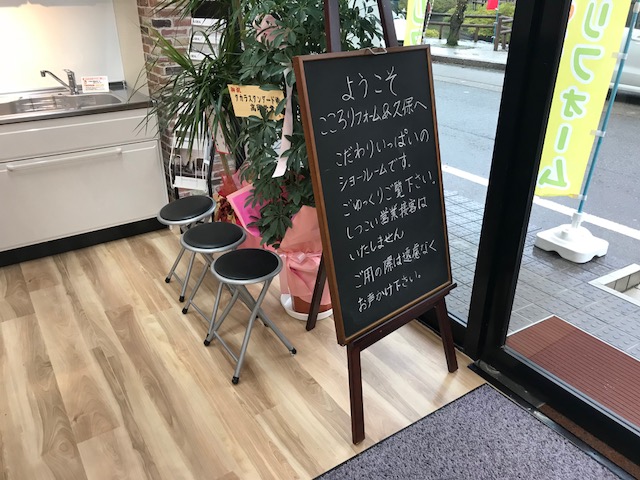 ようこそ
こころリフォーム&久保へ
こだわりいっぱいの
ショールームです。
ごゆっくりご覧下さい。
しつこい営業接客は
いたしません
ご用の際は遠慮なく
お声かけ下さい。
リフォーム